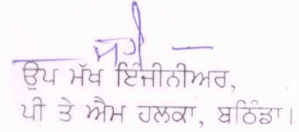 ਉਪ ਮੱਖ ਇੰਜੀਨੀਅਰ,
ਪੀ ਤੇ ਐਮ ਹਲਕਾ, ਬਠਿੰਡਾ।